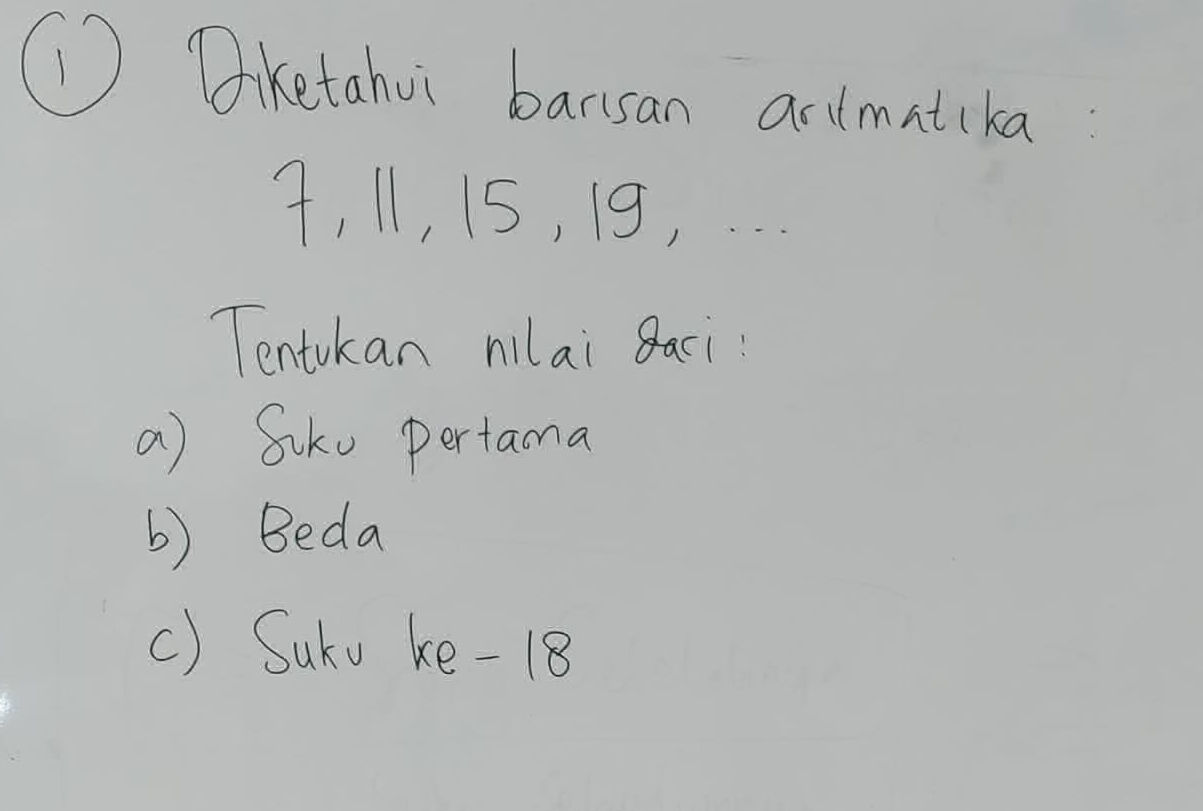 1 Diketahui barisan aritmatika :
7, 11, 15, 19, ...
Tentukan nilai dari :
a) Suku pertama
b) Beda
c) Suku ke - 18